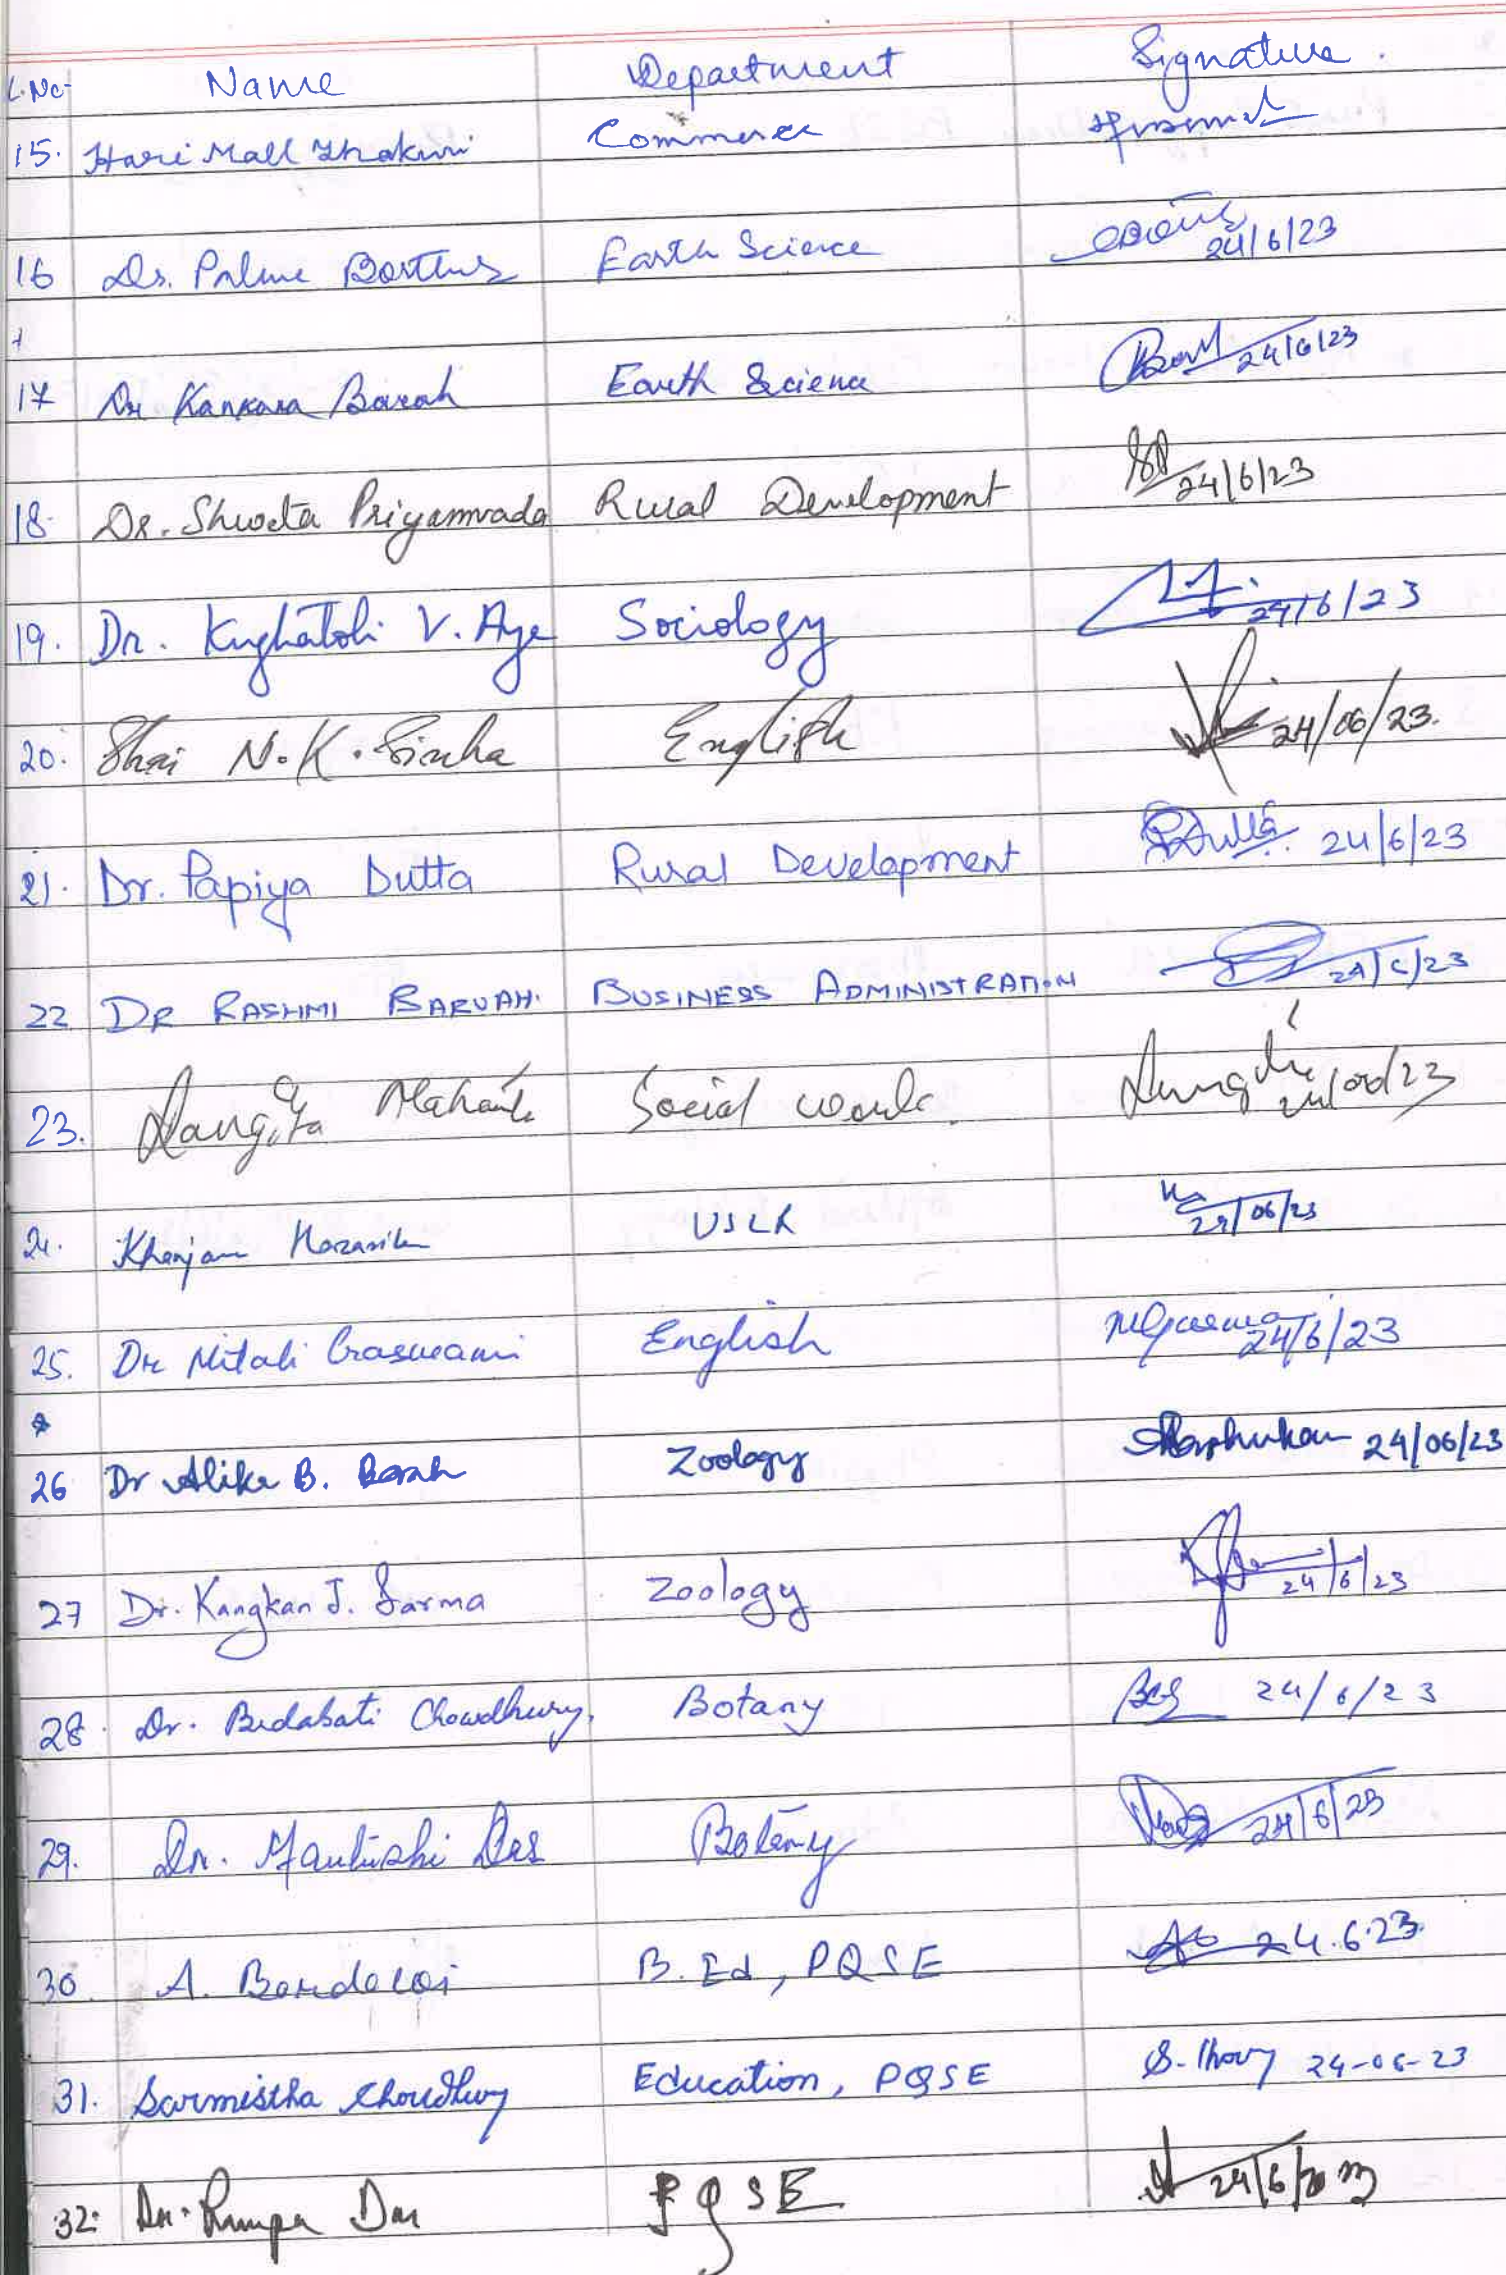 Name Department Signature
15. Hari Mall Thakuri Commerce
16 Dr. Earth Science 24/6/23
17 Dr Kankana Barah Earth Science 24/6/23
18. Dr. Shweta Priyamvada Rural Development 24/6/23
19. Dr. Kughatoli V. Aye Sociology 24/6/23
20. Shri N.K. Sinha English 24/06/23.
21. Dr. Papiya Dutta Rural Development 24/6/23
22 DR RASHMI BARUAH. BUSINESS ADMINISTRATION 24/6/23
23. Sangita Social work
24. Khanjan Hazarika 24/06/23
25. Dr Mitali Goswami English 24/6/23
26 Dr Alika B. Borah Zoology 24/06/23
27 Dr. Kangkan J. Sarma Zoology 24/6/23
28. Dr. Bedabati Chowdhury, Botany 24/6/23
29. Dr. Das Botany 24/6/23
30. A. Bordoloi B. Ed, PQSE 24.6.23
31. Sarmistha Choudhury Education, PQSE 24-06-23
32. Dr. Rumpa Das PQSE 24/6/2023